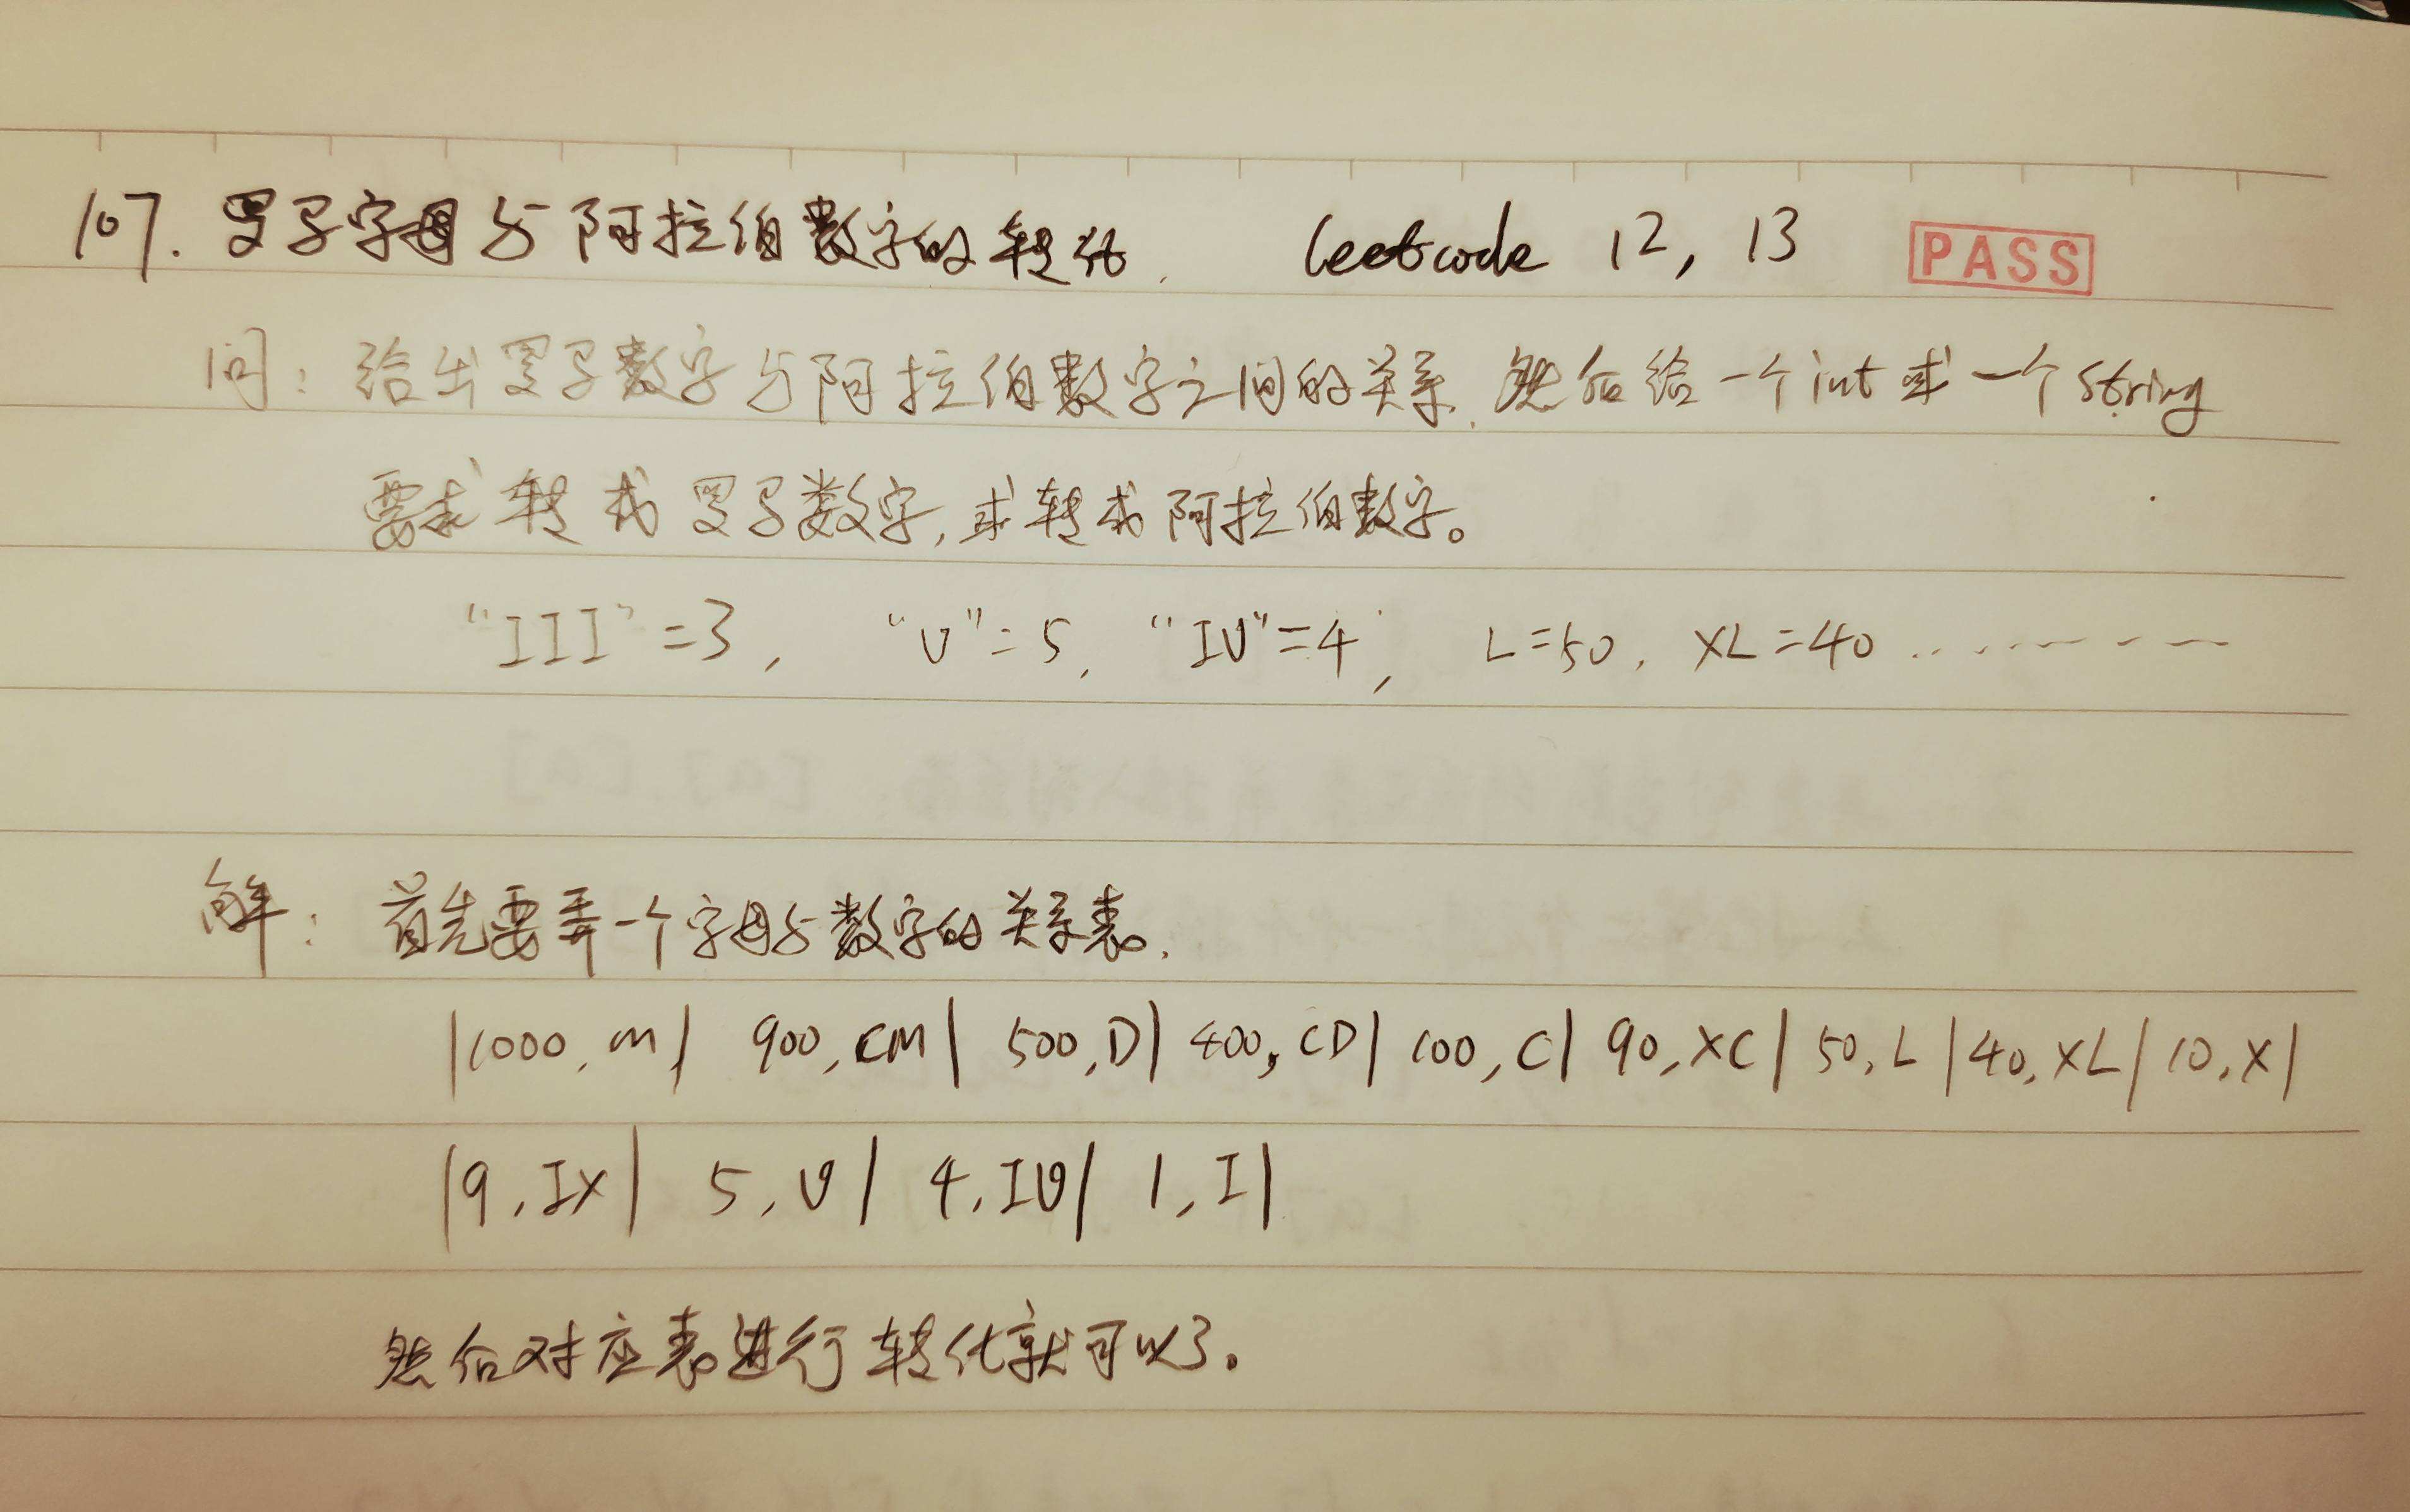 107. 罗马字母与阿拉伯数字的转化. leetcode 12, 13 PASS
问: 给出罗马数字与阿拉伯数字之间的关系. 然后给一个int或一个string
要求转成罗马数字, 或转成阿拉伯数字。
"III"=3, "V"=5, "IV"=4, L=50, XL=40 ………
解: 首先要弄一个字母与数字的关系表.
|1000, M| 900, CM| 500, D| 400, CD| 100, C| 90, XC| 50, L|40, XL| 10, X|
|9, IX| 5, V| 4, IV| 1, I|
然后对应表进行转化就可以了。